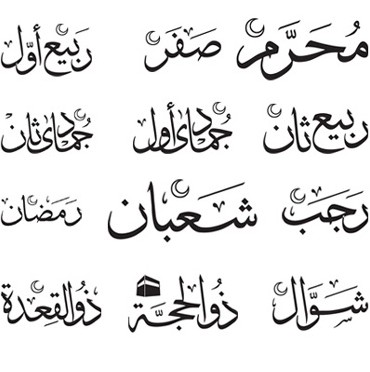 مُحَرَّم صَفَر رَبيع أوّل
رَبيع ثان جُمادى أول جُمادى ثان
رَجَب شَعبان رَمَضان
شَوَّال ذُو الحجَّة ذُو القِعدة